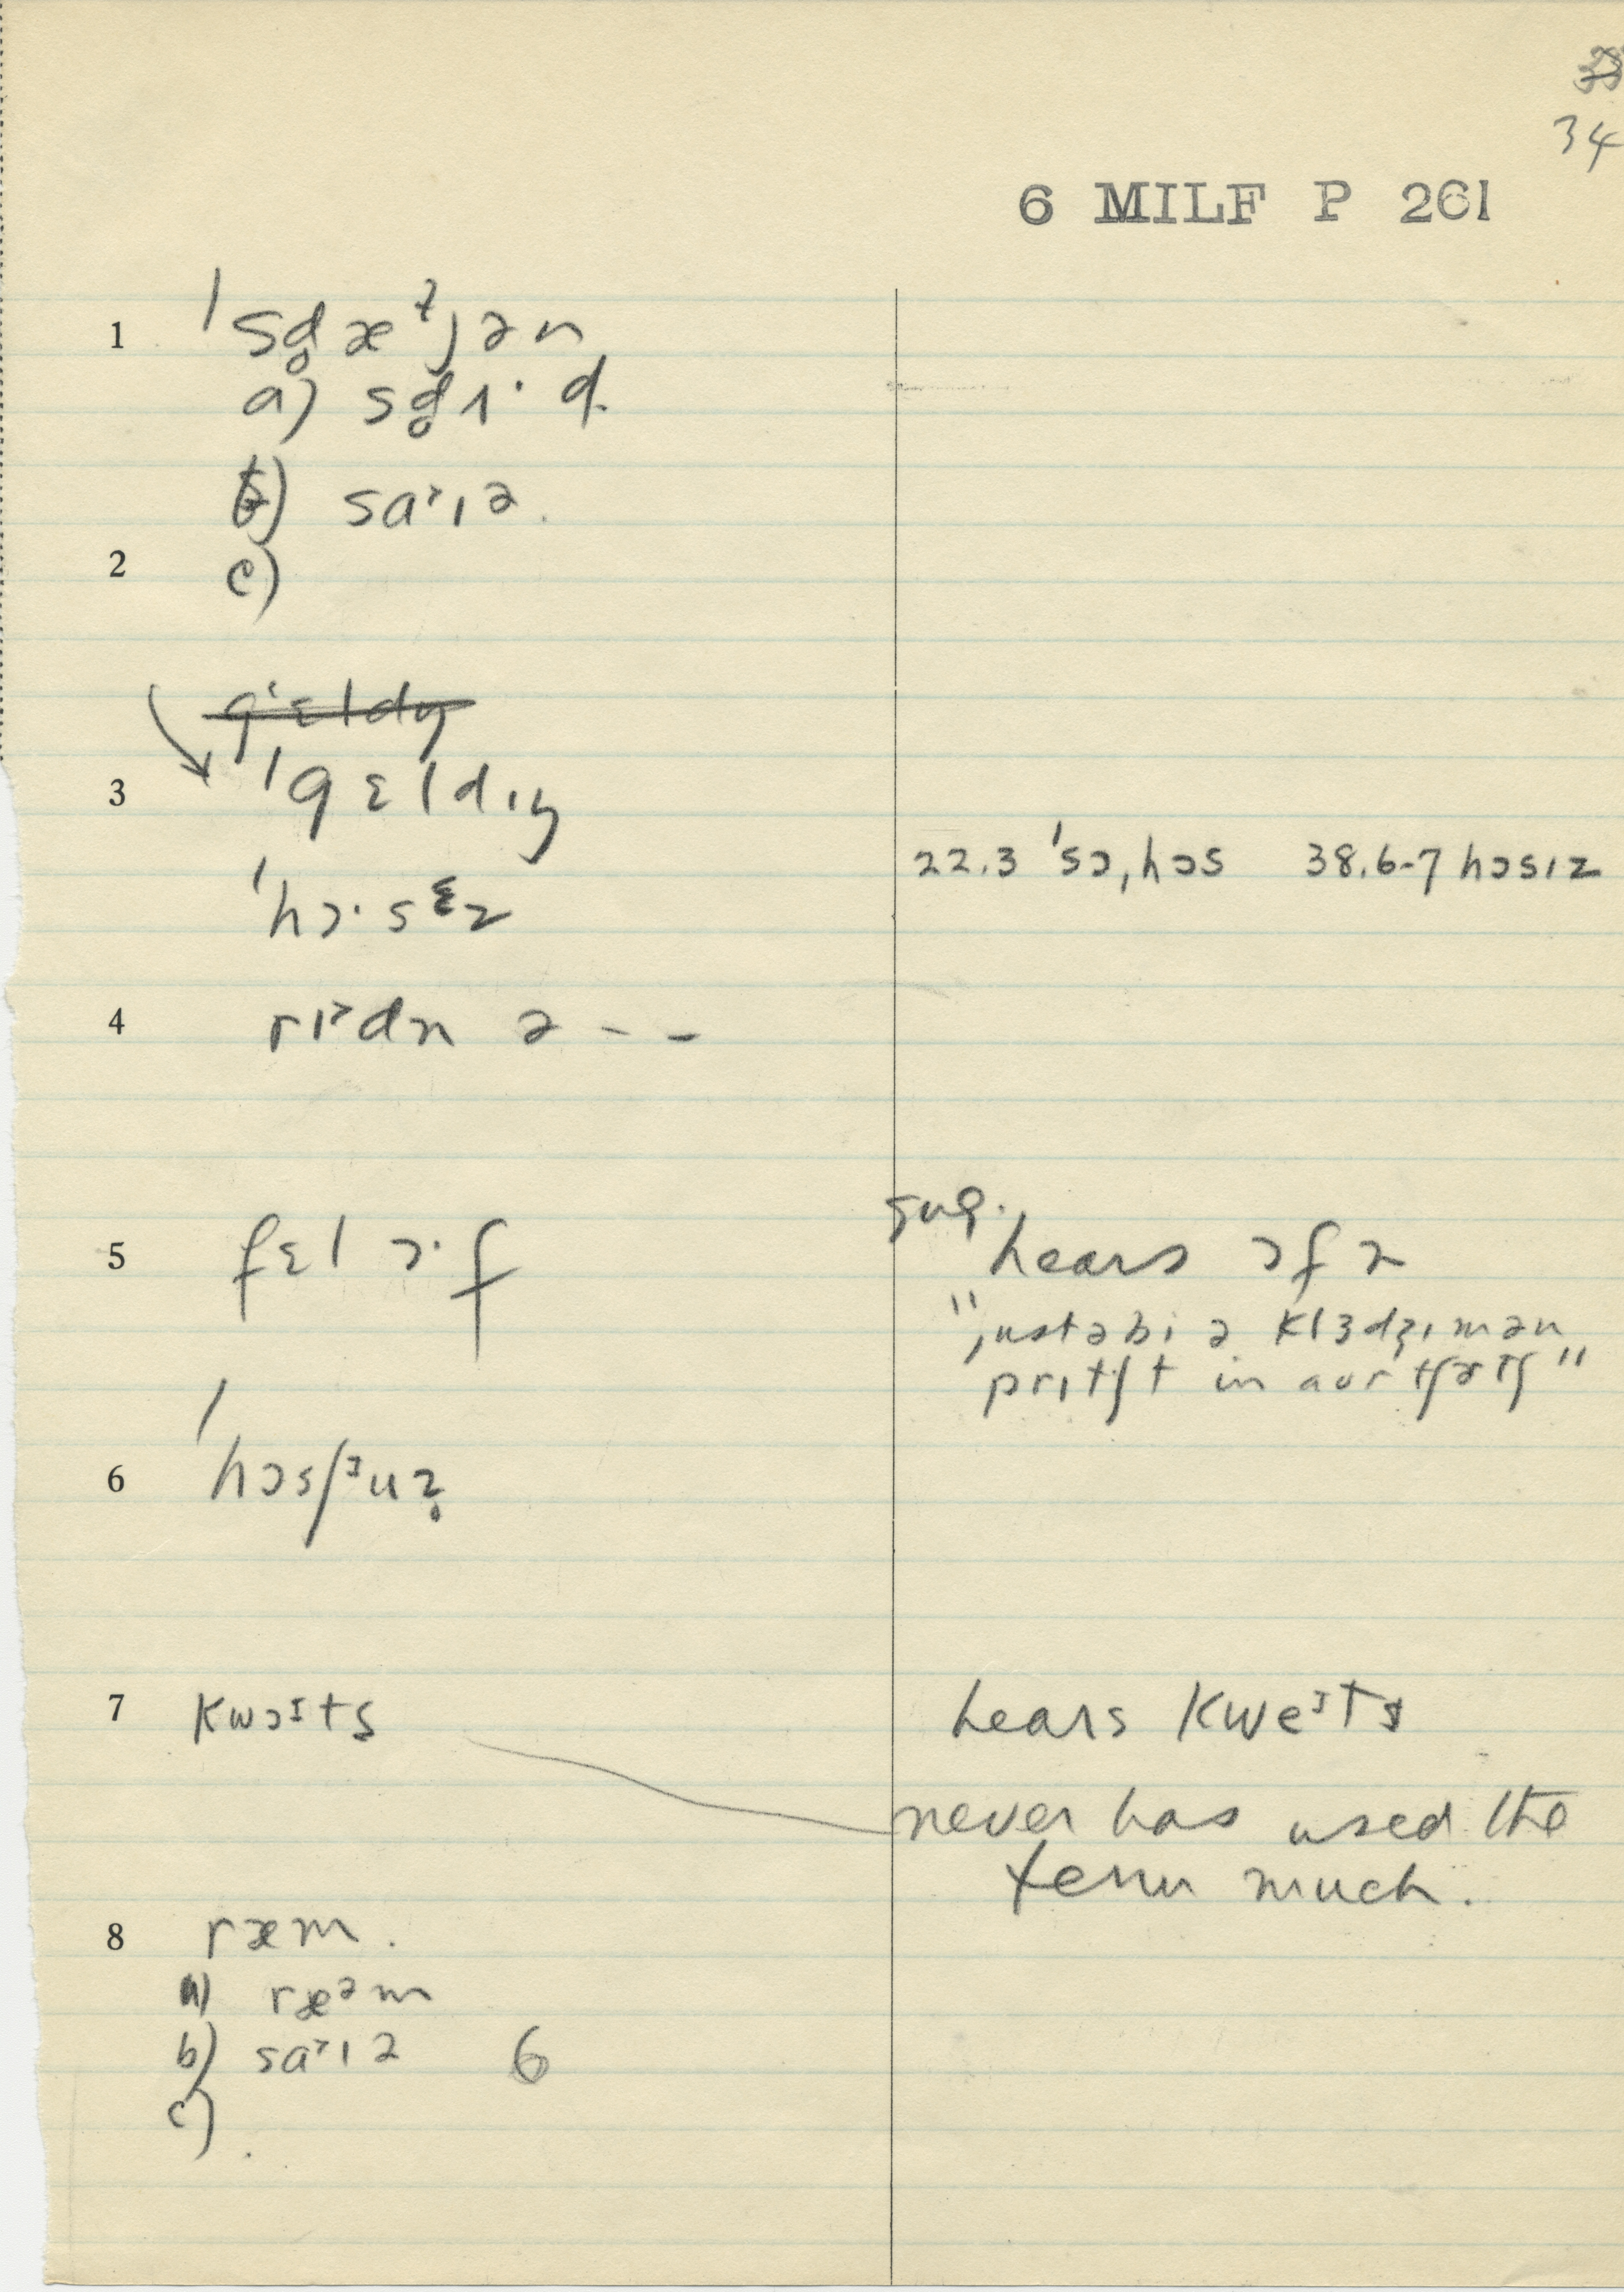 34
6 MILF P 261
1 ˈsd̥æᵗjən
a) sd̥ɪ· d
b) sa˃ɪə.
2 c)
3 ˈgɛldɪŋ
ˈhɔ·sᵋz 22.3 ˈsɔˌhɔs 38.6-7 hɔsɪz
4 rɪ˃dn ə - -
sug.
5 fɛl ɔ·f hears ɔf ə
"justəbi ə klɜdʒɪmən
prɪtʃt in aur tʃɜtʃ"
6 ˈhɔsʃᶾuz̥
7 kwɔᶦts hears kweᶦts
never has used the
term much.
8 ræm.
a) ræᵊm
b) sa˃ɪə 6
c)